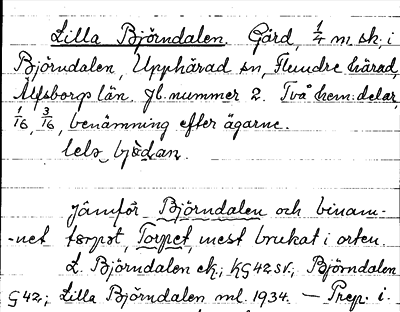 Lilla Björndalen. Gård, 1/4 m. sk; i
Björndalen, Upphärad sn, Flundre härad,
Älfsborgs län. Jb. nummer 2. Två hem. delar,
1/16, 3/16, benämning efter ägarne.
Jämför Björndalen och binam-
-net torpet, Torpet, mest brukat i orten.
L. Björndalen ek; KG42sv; Björndalen
G42; Lilla Björndalen ml. 1934. — Prep. i.